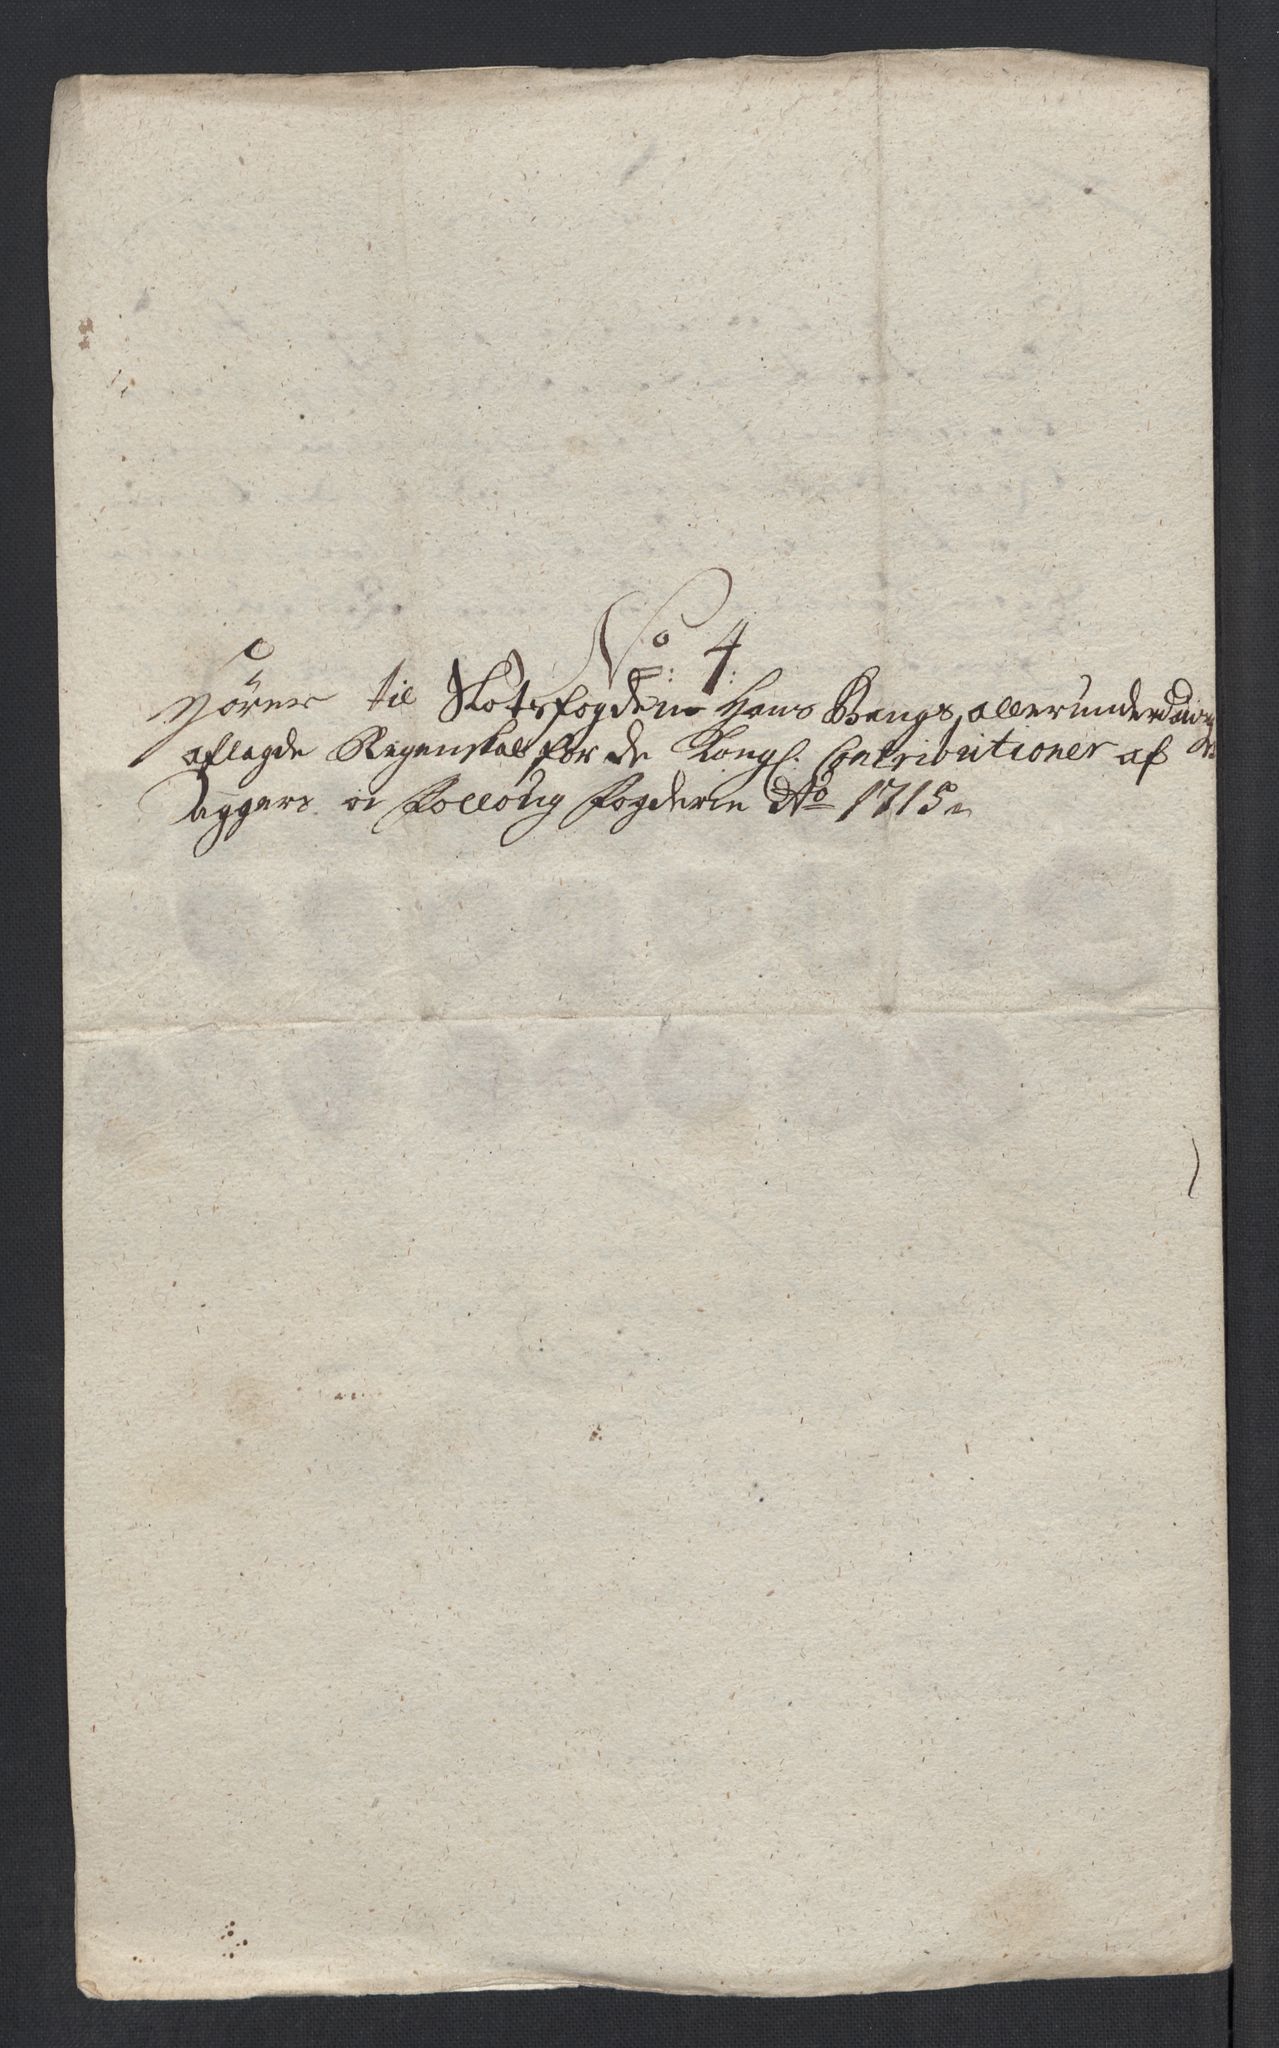 No: 4:
Hörer til Slotsfogden Hans Bangs allerunderdanigst
aflagde Regenskab for de Kongl: Contributioner af
Aggers oc Folloug Fogderie Ao 1715